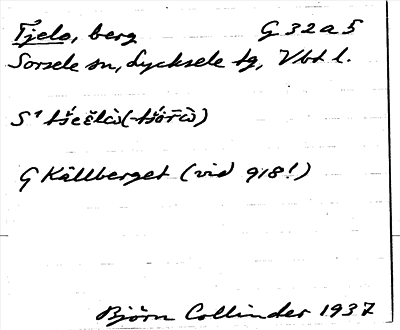 Tjelo, berg G 32 a 5
Sorsele sn, Lycksele tg, Vbt l.
G Källberget (vid 918!)
Björn Collinder 1937